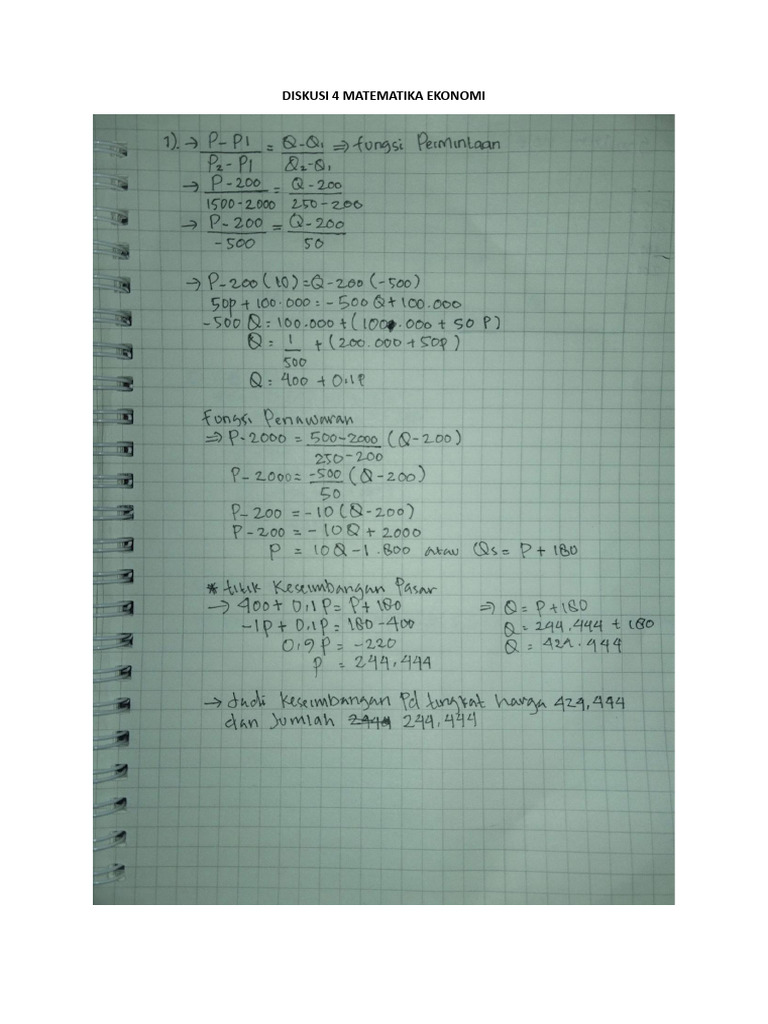 DISKUSI 4 MATEMATIKA EKONOMI
1). → P-P1/P2-P1 = Q-Q1/Q2-Q1 ⇒ fungsi Permintaan
→ P-200/1500-2000 = Q-200/250-200
→ P-200/-500 = Q-200/50
→ P-200(10) = Q-200(-500)
50p + 100.000 = -500Q + 100.000
-500 Q = 100.000 + (100.000 + 50 P)
Q = 1/500 + (200.000 + 50p)
Q = 400 + 0,1P
Fungsi Penawaran
⇒ P-2000 = 500-2000/250-200 (Q-200)
P-2000 = -500/50 (Q-200)
P-200 = -10(Q-200)
P-200 = -10Q + 2000
P = 10Q - 1.800 atau Qs = P + 180
* titik Keseimbangan Pasar
→ 400 + 0,1P = P + 180 ⇒ Q = P + 180
-1P + 0,1P = 180-400 Q = 244.444 + 180
0,9P = -220 Q = 424.444
P = 244,444
→ Jadi Keseimbangan Pd tingkat harga 424,444
dan Jumlah 244,444